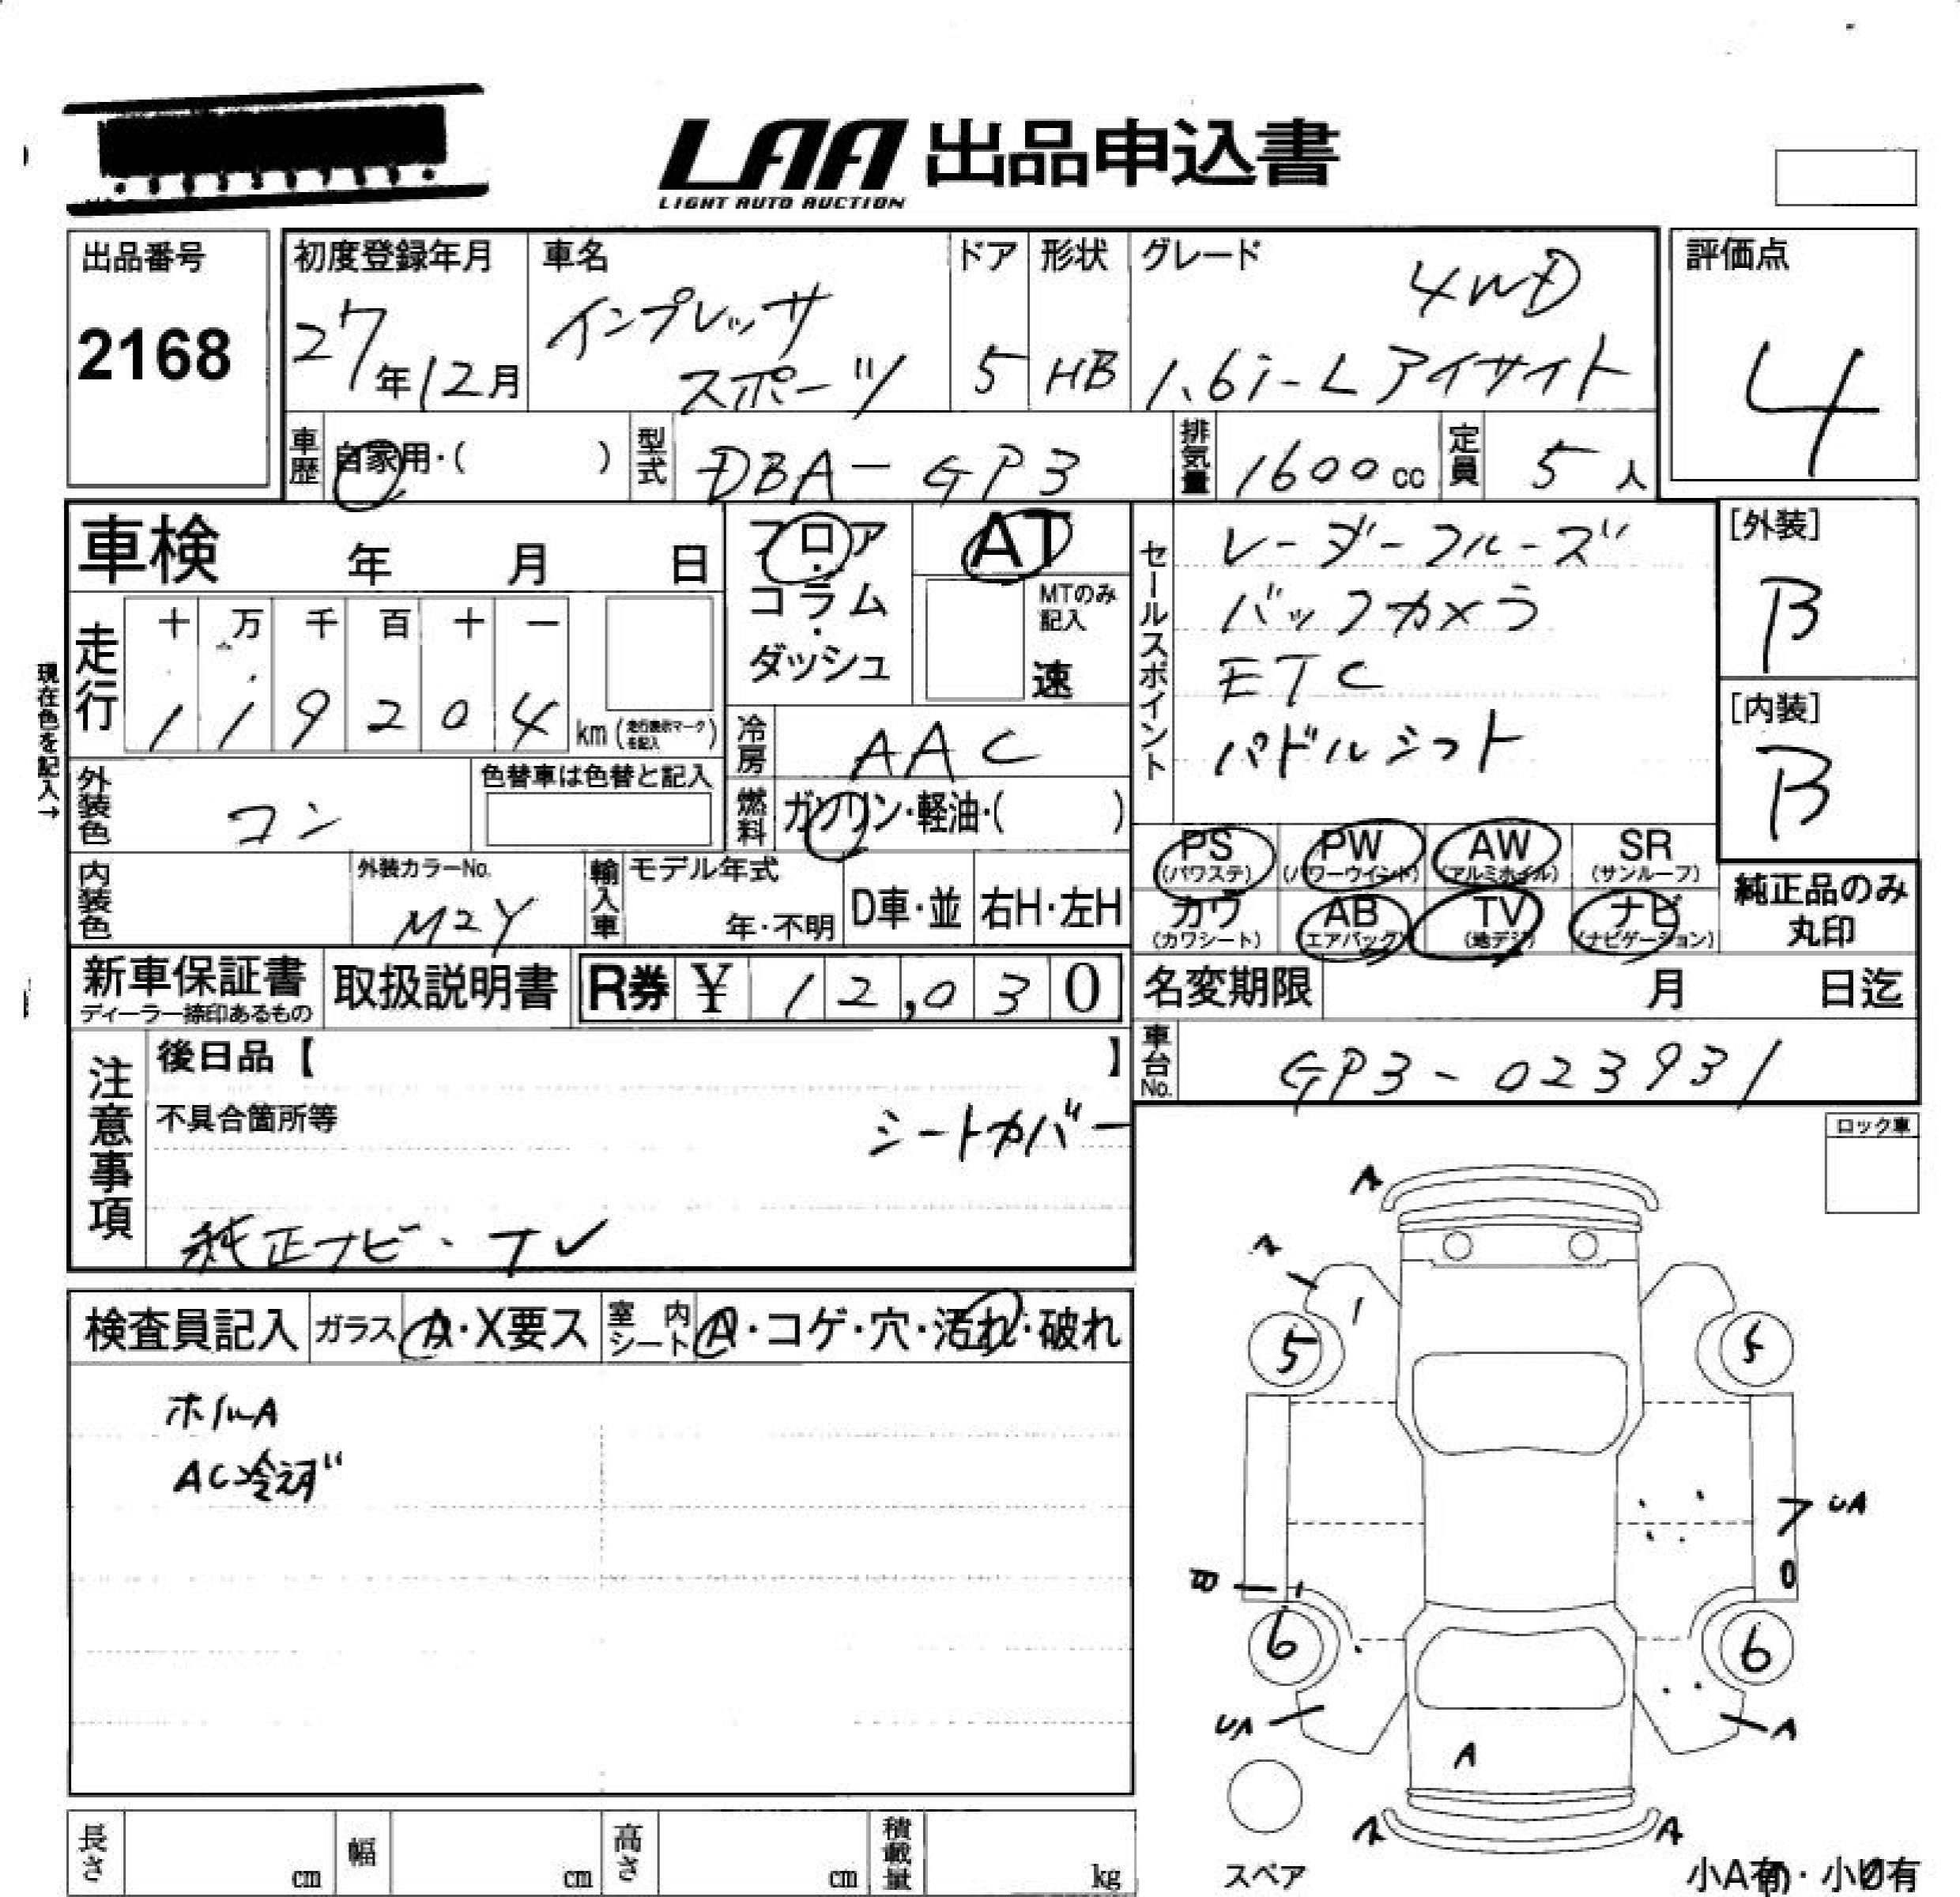 LAA 出品申込書
LIGHT AUTO AUCTION
出品番号
2168
初度登録年月
27年12月
車名
インプレッサ
スポーツ
ドア
5
形状
HB
グレード
4WD
1.6i-L アイサイト
評価点
4
車歴 自家用・( )
型式 DBA-GP3
排気量 1600cc
定員 5人
車検 年 月 日
フロア
・
コラム
・
ダッシュ
AT
MTのみ
記入
速
セールスポイント
レーダークルーズ
バックカメラ
ETC
パドルシフト
[外装]
B
[内装]
B
現在色を記入→
走行
十 万 千 百 十 一
1 1 9 2 0 4 km (走行表示マークを記入)
冷房 AAC
外装色 コン
色替車は色替と記入
燃料 ガソリン・軽油・( )
内装色
外装カラーNo.
M2Y
輸入車
モデル年式
年・不明
D車・並
右H・左H
PS (パワステ)
PW (パワーウインド)
AW (アルミホイル)
SR (サンルーフ)
カワ (カワシート)
AB (エアバック)
TV (地デジ)
ナビ (ナビゲーション)
純正品のみ
丸印
新車保証書
ディーラー捺印あるもの
取扱説明書
R券 ¥ 12,030
名変期限 月 日迄
車台No. GP3-023931
注意事項
後日品【 】
不具合箇所等
シートカバー
純正ナビ・TV
ロック車
検査員記入
ガラス A・X要ス
室内シート A・コゲ・穴・汚れ・破れ
ホイルA
AC冷えず
A
A
5
5
UA
B
6
6
UA
A
A
A
A
スペア
小A有・小U有
長さ cm
幅 cm
高さ cm
積載量 kg